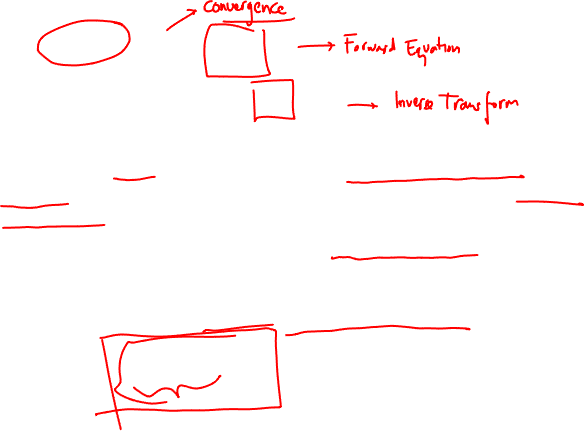 Convergence
Forward Equation
Inverse Transform